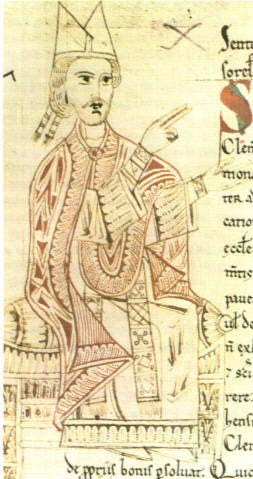 Senten
sorel
S
Cleri
mona
ter a
catio
eccle
mtis
paue
ul de
n exl
⁊ sci
rere
hensi
Cler
de ꝓpriis bonis ꝑsoluat. Quic